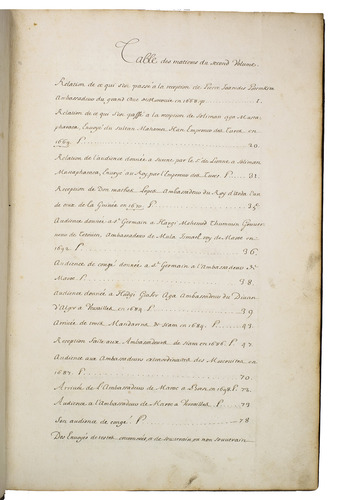 Table des matieres du second Volume.
Relation de ce qui s'est passé a la reception de Pierre Joanides Potemkin
Ambassadeur du grand Duc de Moscovie en 1668. p. 1.
Relation de ce qui s'est passé a la reception de Soliman aga Musta
pharaca, Envoyé du sultan Mahomet Han Empereur des Turcs, en
1669. P. 20.
Relation de l'audience donnée a Surene par le Sr. de Lionne a Soliman
Mustapharaca, Envoyé au Roy par l'Empereur des Turcs. P. 31.
Reception de Don Matheo Lopez Ambassadeur du Roy d'Arda
de la Guinée en 1670. P. 35.
Audience donnée a St. Germain a Haggi Mehemed Thummin Gouver
neur de Tetouan, Ambassadeur de Mula Ismael roy de Maroc en
1682. P. 36.
Audience de congé donnée a St. Germain a l'Ambassadeur de
Maroc. P. 38.
Audience donnée a Hadgi Giafer Aga Ambassadeur du Divan
d'Alger a Versailles, en 1684. P. 39.
Arrivée de deux Mandarins de Siam en 1684. P. 43.
Reception faite aux Ambassadeurs de Siam en 1686. P. 47.
Audience aux Ambassadeurs extraordinaires des Moscovites en
1687. P. 70.
Arrivée de l'Ambassadeur de Maroc a Paris en 1698. P. 72.
Audience a l'Ambassadeur de Maroc a Versailles. P. 73
Son audience de congé. P. 78
Des Envoyés de testes couronnées et de souverain ou non souverain